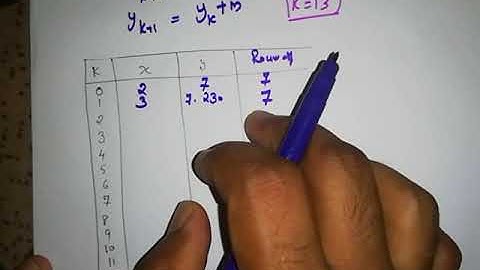 y_{k+1} = y_k + m
K=13
K x y Round off
0 2 7 7
1 3 7.230 7
2
3
4
5
6
7
8
9
10
11